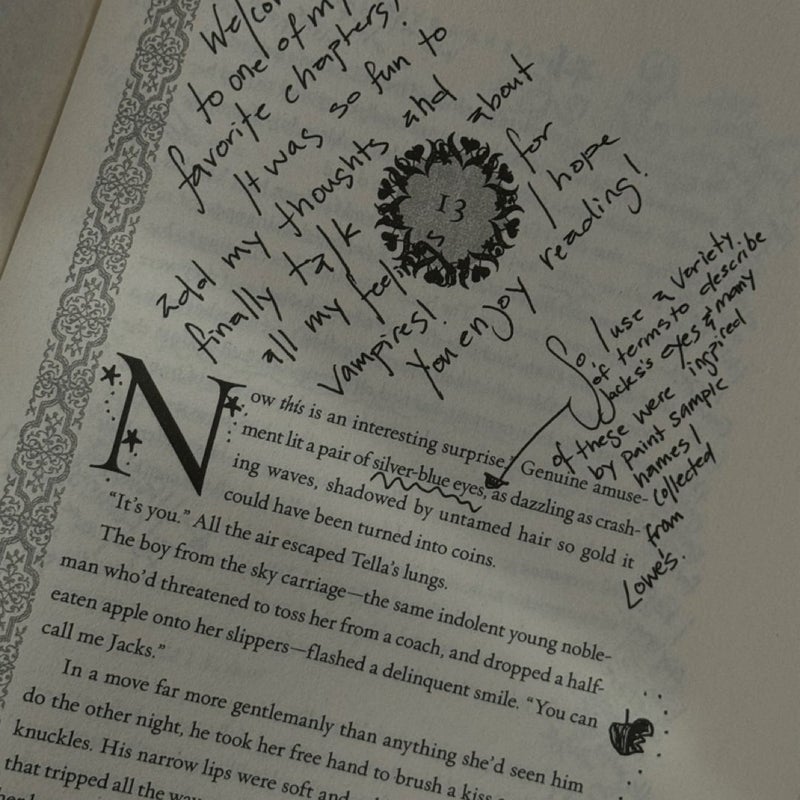 Welco
to one of my
favorite chapters!
It was so fun to
add my thoughts and
finally talk about
all my feelings for
vampires! I hope
you enjoy reading!
13
So, I use a variety
of terms to describe
Jacks's eyes & many
of these were inspired
by paint sample
names I
collected
from
Lowe's.
Now this is an interesting surprise." Genuine amuse-
ment lit a pair of silver-blue eyes, as dazzling as crash-
ing waves, shadowed by untamed hair so gold it
could have been turned into coins.
"It's you." All the air escaped Tella's lungs.
The boy from the sky carriage—the same indolent young noble-
man who'd threatened to toss her from a coach, and dropped a half-
eaten apple onto her slippers—flashed a delinquent smile. "You can
call me Jacks."
In a move far more gentlemanly than anything she'd seen him
do the other night, he took her free hand to brush a kiss
knuckles. His narrow lips were soft and
that tripped all the wa